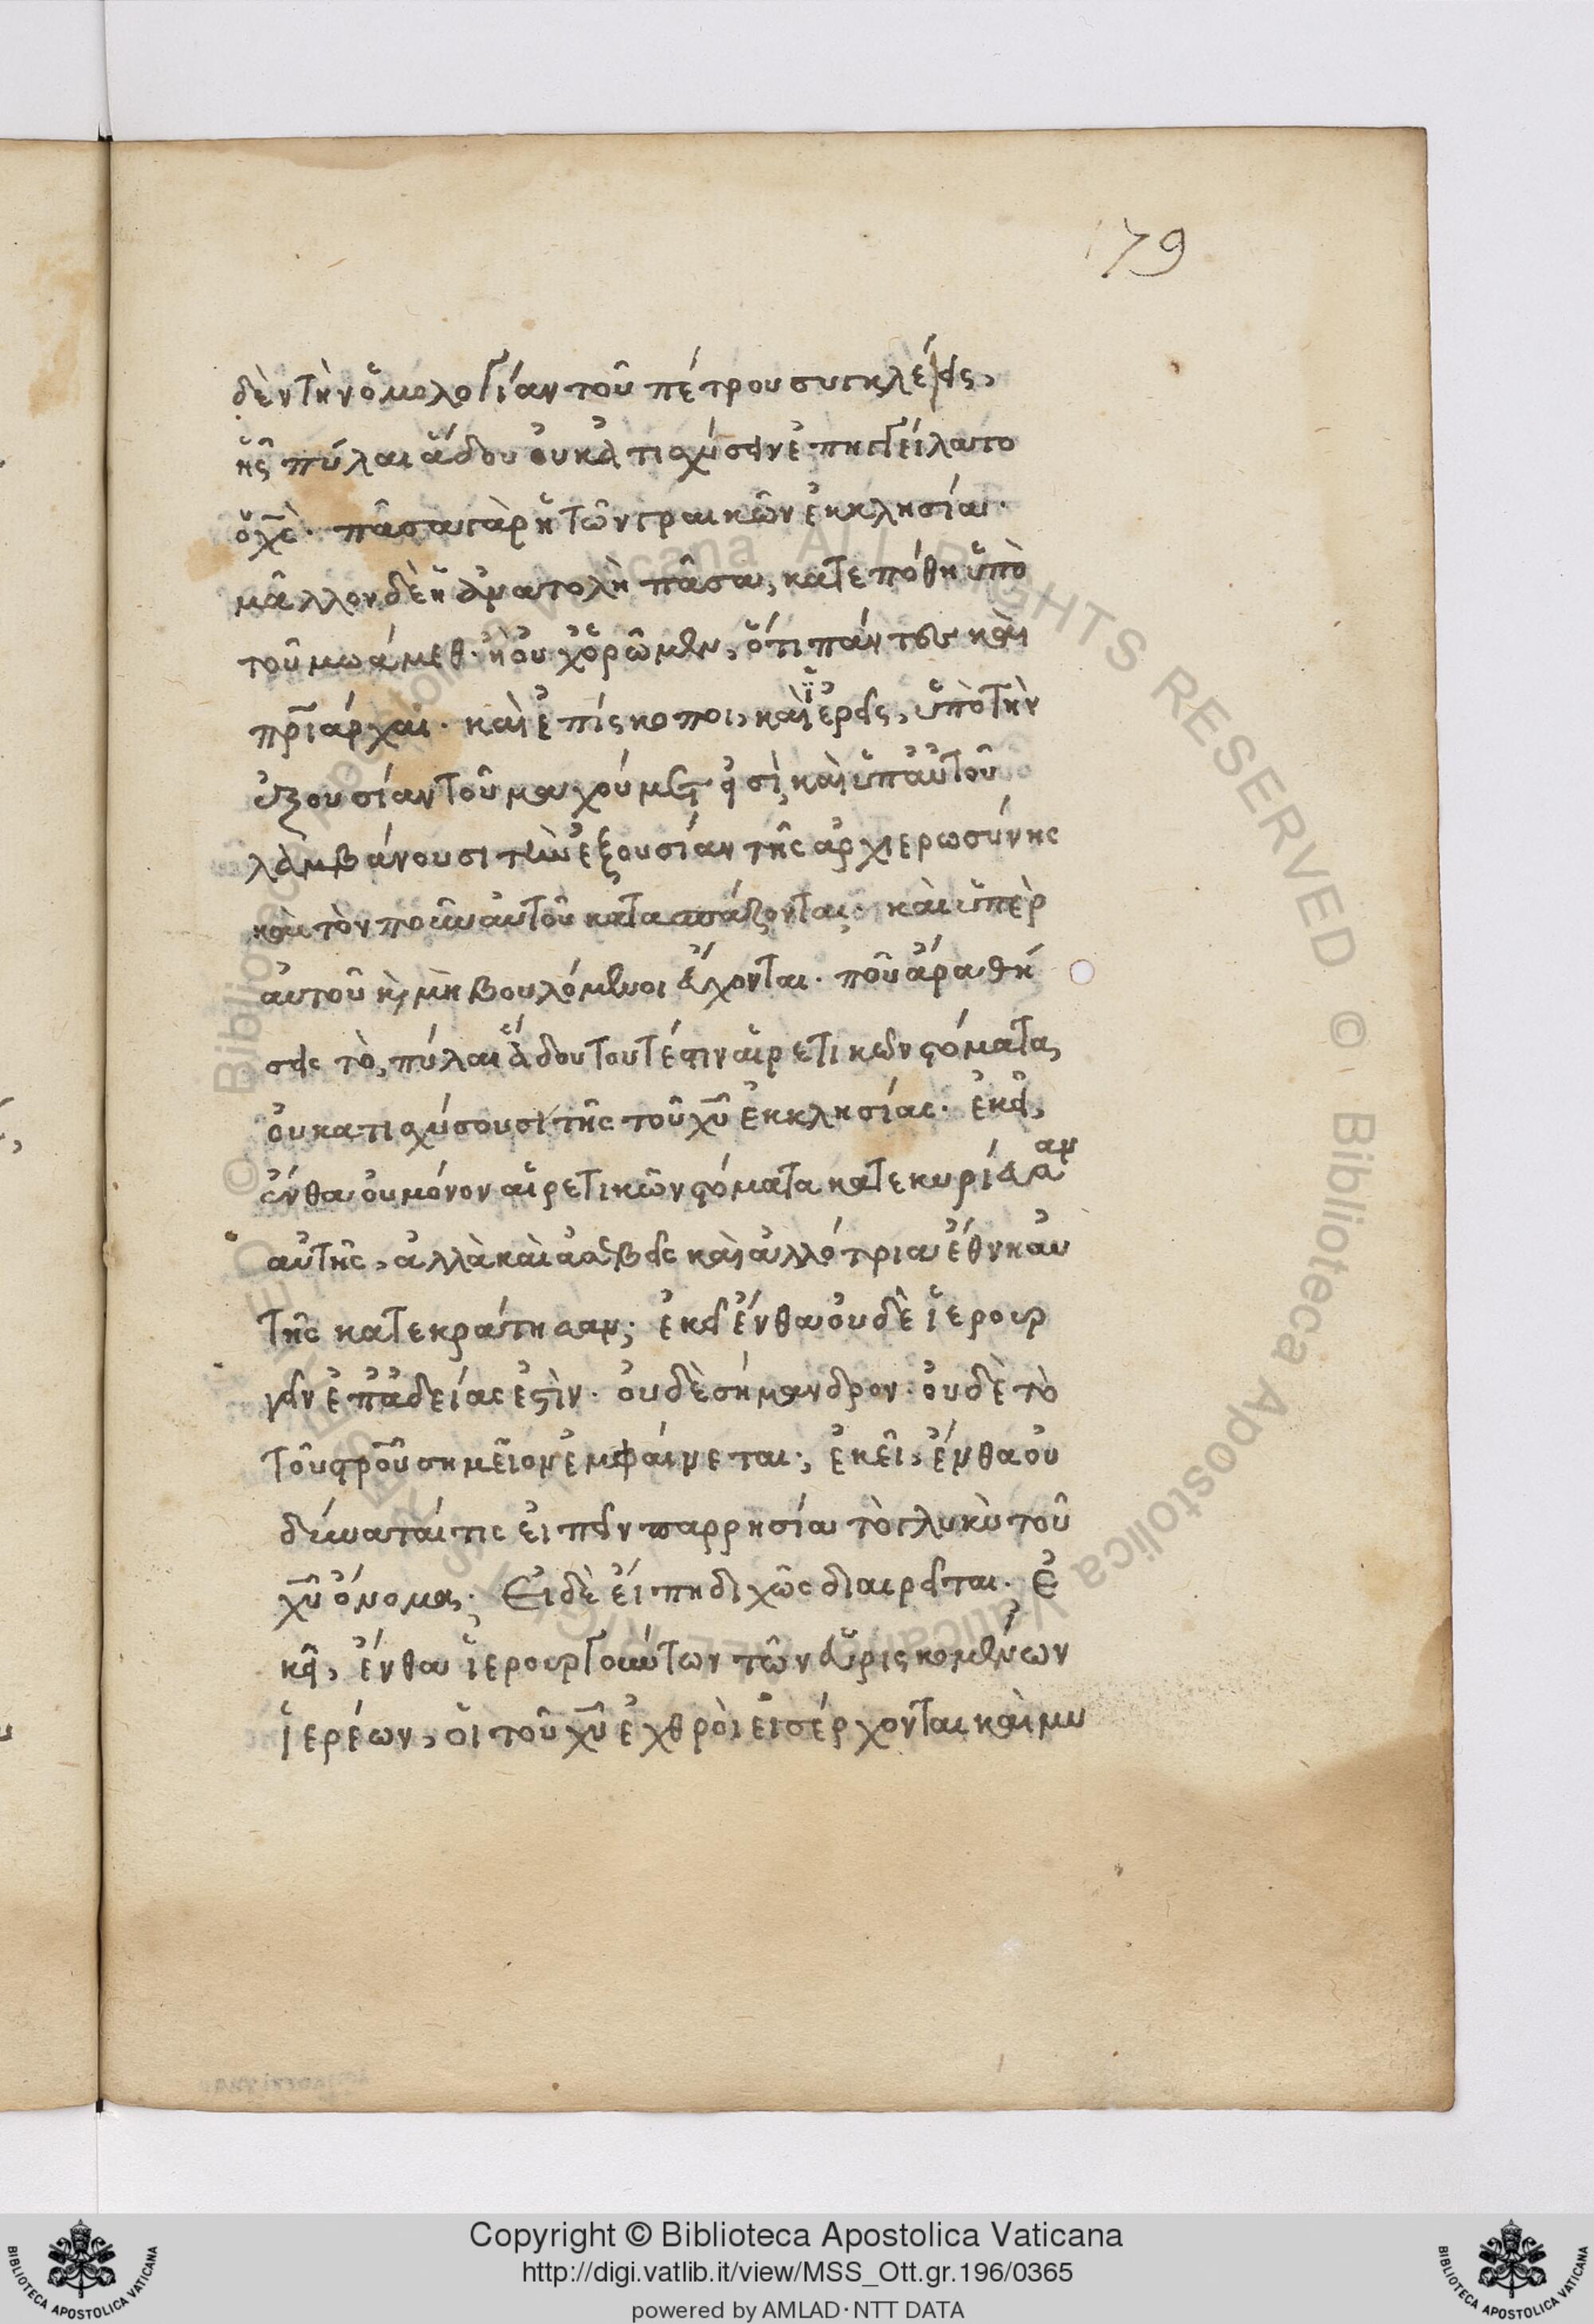 179
δὲν τὴν ὁμολογίαν τοῦ πέτρου συγκλείεις,
ἧς πύλαι ἅδου οὐ κατισχύσειν ἐπηγγείλατο
ὁ χς̄. πᾶσα γὰρ ἡ τῶν γραικῶν ἐκκλησία.
μᾶλλον δὲ ἡ ἀνατολὴ πᾶσα, κατεπόθη ὑπὸ
τοῦ μωάμεθ. ἢ οὐχ ὁρῶμεν, ὅτι πάντες καὶ
πρ̄ιάρχαι. καὶ ἐπίσκοποι, καὶ ἱερεῖς, ὑπὸ τὴν
ἐξουσίαν τοῦ μαχούμετ εἰσὶ, καὶ ὑπ' αὐτοῦ
λαμβάνουσι τὴν ἐξουσίαν τῆς ἀρχιερωσύνης
καὶ τὸν ποῦν αὐτοῦ κατασπάζονται. καὶ ὑπὲρ
αὐτοῦ κ μὴ βουλόμενοι εὔχονται. ποῦ ἄρα θή
σεις τὸ, πύλαι ἅδου τουτέστιν αἱρετικῶν στόματα,
οὐ κατισχύσουσι τῆς τοῦ χῦ ἐκκλησίας. ἐκεῖ,
ἔνθα οὐ μόνον αἱρετικῶν στόματα κατεκυρίευσαν
αὐτῆς, ἀλλὰ καὶ ἀσεβεῖς καὶ ἀλλότρια ἔθνη αὐ
τῆς κατεκράτησαν; ἐκεῖ ἔνθα οὐδὲ ἱερουρ
γεῖν ἐπ' ἀδείας ἐστὶν. οὐδὲ σήμανδρον. οὐδὲ τὸ
τοῦ στρο̄ῦ σημεῖον ἐμφαίνεται; ἐκεῖ, ἔνθα οὐ
δύναταί τις εἰπεῖν παρρησία τὸ γλυκὺ τοῦ
χῦ ὄνομα; Εἰ δὲ εἴπῃ διχῶς διαιρεῖται. Ἐ
κεῖ, ἔνθα ἱερουργούντων τῶν εὑρισκομένων
ἱερέων, οἱ τοῦ χῦ ἐχθροὶ εἰσέρχονται καὶ μυ
© Biblioteca Apostolica Vaticana ALL RIGHTS RESERVED
Copyright © Biblioteca Apostolica Vaticana
http://digi.vatlib.it/view/MSS_Ott.gr.196/0365
powered by AMLAD·NTT DATA
BIBLIOTECA APOSTOLICA VATICANA
BIBLIOTECA APOSTOLICA VATICANA